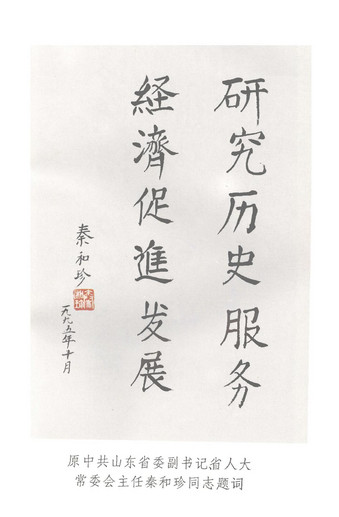 研究历史服务
経濟促進发展
秦和珍
一九九五年十月
原中共山东省委副书记省人大
常委会主任秦和珍同志题词